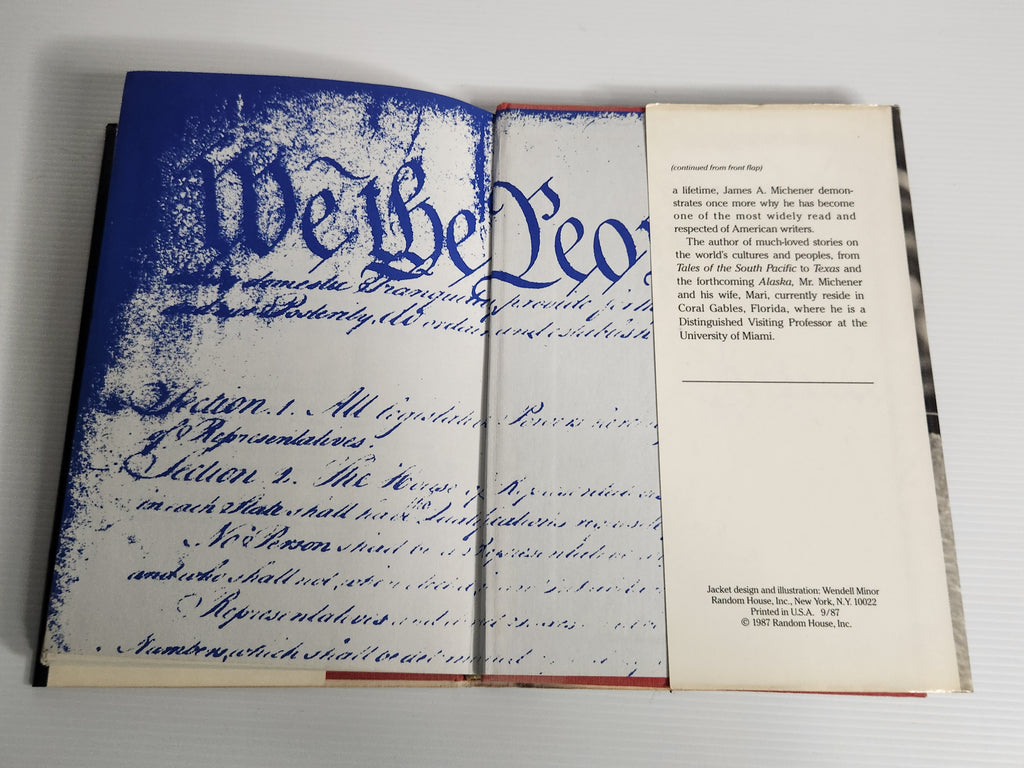 We the Peo
domestic Tranquility, provide for th
our Posterity, do ordain and establish
Section. 1. All legislative Powers herei
of Representatives.
Section. 2. The House of Representatives
in each State shall have the Qualifications requisite
No Person shall be a Representative
and who shall not, when elected, be an Inhabitant
Representatives and direct Taxes
Numbers, which shall be determined
(continued from front flap)
a lifetime, James A. Michener demon-
strates once more why he has become
one of the most widely read and
respected of American writers.
The author of much-loved stories on
the world's cultures and peoples, from
Tales of the South Pacific to Texas and
the forthcoming Alaska, Mr. Michener
and his wife, Mari, currently reside in
Coral Gables, Florida, where he is a
Distinguished Visiting Professor at the
University of Miami.
Jacket design and illustration: Wendell Minor
Random House, Inc., New York, N.Y. 10022
Printed in U.S.A. 9/87
© 1987 Random House, Inc.